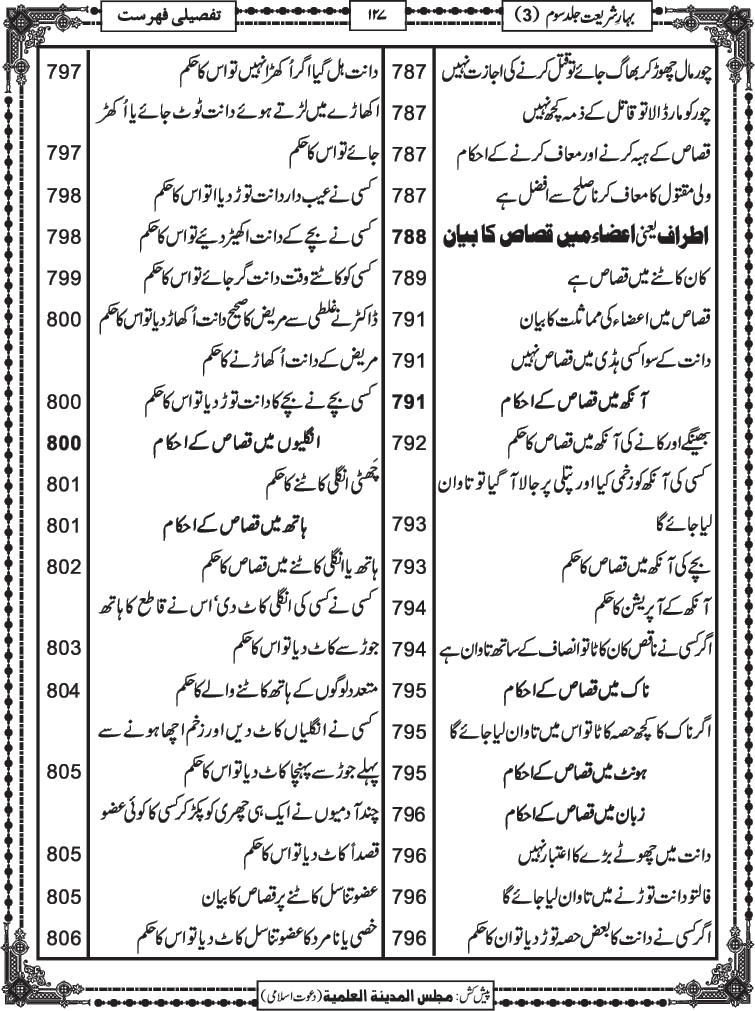 بہارِ شریعت جلد سوم (3)
۱۲۷
تفصیلی فہرست
چور مال چھوڑ کر بھاگ جائے تو قتل کرنے کی اجازت نہیں 787
چور کو مار ڈالا تو قاتل کے ذمہ کچھ نہیں 787
قصاص کے ہبہ کرنے اور معاف کرنے کے احکام 787
ولی مقتول کا معاف کرنا صلح سے افضل ہے 787
اطراف یعنی اعضاء میں قصاص کا بیان 788
کان کاٹنے میں قصاص ہے 789
قصاص میں اعضاء کی مماثلت کا بیان 791
دانت کے سوا کسی ہڈی میں قصاص نہیں 791
آنکھ میں قصاص کے احکام 791
بھینگے اور کانے کی آنکھ میں قصاص کا حکم 792
کسی کی آنکھ کو زخمی کیا اور پتلی پر جالا آ گیا تو تاوان
لیا جائے گا 793
بچے کی آنکھ میں قصاص کا حکم 793
آنکھ کے آپریشن کا حکم 794
اگر کسی نے ناقص کان کاٹا تو انصاف کے ساتھ تاوان ہے 794
ناک میں قصاص کے احکام 795
اگر ناک کا کچھ حصہ کاٹا تو اس میں تاوان لیا جائے گا 795
ہونٹ میں قصاص کے احکام 795
زبان میں قصاص کے احکام 796
دانت میں چھوٹے بڑے کا اعتبار نہیں 796
فالتو دانت توڑنے میں تاوان لیا جائے گا 796
اگر کسی نے دانت کا بعض حصہ توڑ دیا تو ان کا حکم 796
دانت ہل گیا اگر اُکھڑا نہیں تو اس کا حکم 797
اکھاڑے میں لڑتے ہوئے دانت ٹوٹ جائے یا اُکھڑ
جائے تو اس کا حکم 797
کسی نے عیب دار دانت توڑ دیا تو اس کا حکم 798
کسی نے بچے کے دانت اکھیڑ دیئے تو اس کا حکم 798
کسی کو کاٹتے وقت دانت گر جائے تو اس کا حکم 799
ڈاکٹر نے غلطی سے مریض کا صحیح دانت اُکھاڑ دیا تو اس کا حکم 800
مریض کے دانت اُکھاڑنے کا حکم
کسی بچے نے بچے کا دانت توڑ دیا تو اس کا حکم 800
انگلیوں میں قصاص کے احکام 800
چَھٹی انگلی کاٹنے کا حکم 801
ہاتھ میں قصاص کے احکام 801
ہاتھ یا انگلی کاٹنے میں قصاص کا حکم 802
کسی نے کسی کی انگلی کاٹ دی، اس نے قاطع کا ہاتھ
جوڑ سے کاٹ دیا تو اس کا حکم 803
متعدد لوگوں کے ہاتھ کاٹنے والے کا حکم 804
کسی نے انگلیاں کاٹ دیں اور زخم اچھا ہونے سے
پہلے جوڑ سے پہنچا کاٹ دیا تو اس کا حکم 805
چند آدمیوں نے ایک ہی چھری کو پکڑ کر کسی کا کوئی عضو
قصداً کاٹ دیا تو اس کا حکم 805
عضو تناسل کاٹنے پر قصاص کا بیان 805
خصی یا نامرد کا عضو تناسل کاٹ دیا تو اس کا حکم 806
پیش کش: مجلس المدینۃ العلمیۃ (دعوت اسلامی)